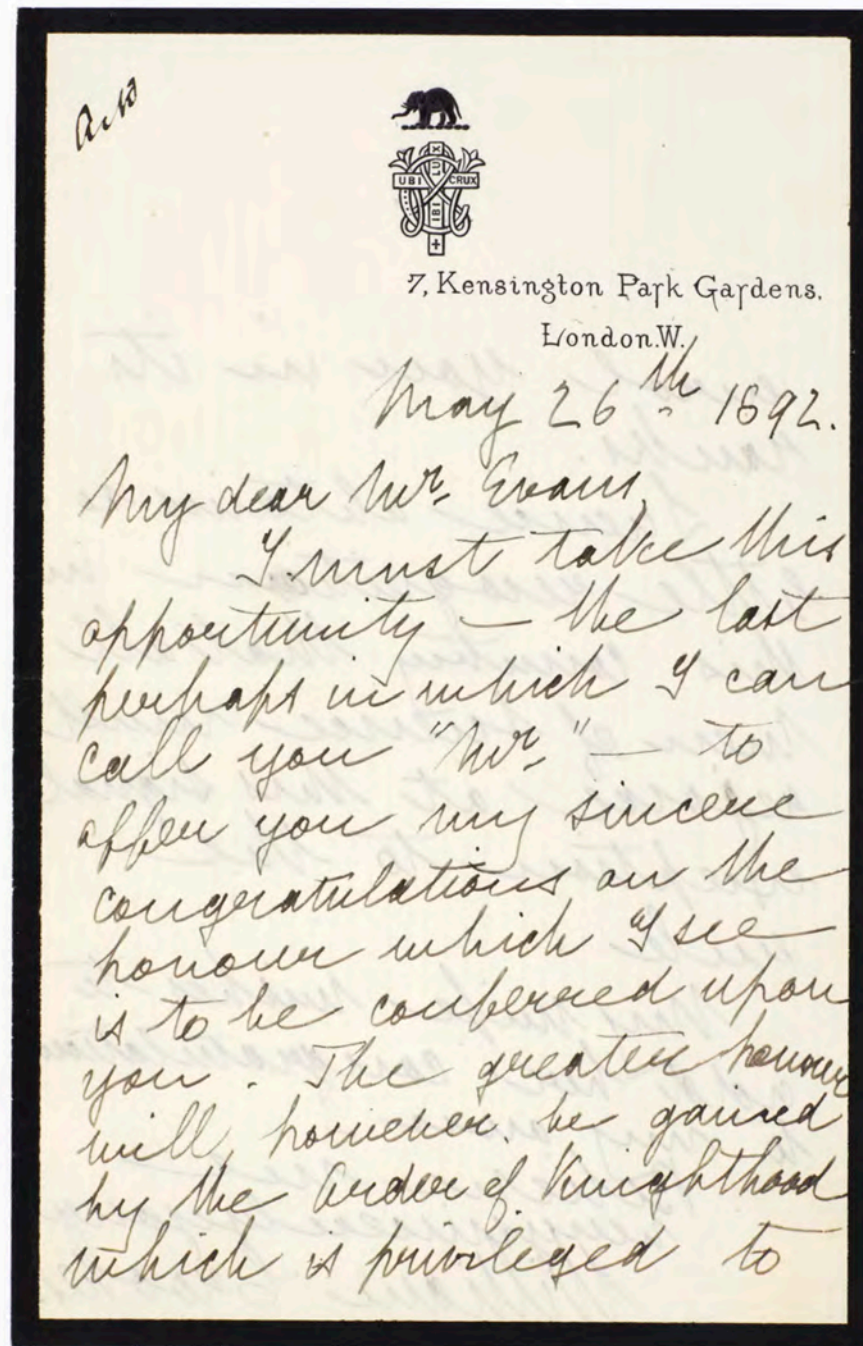 UBI CRUX
IBI LUX
7, Kensington Park Gardens.
London.W.
May 26th 1892.
My dear Mr. Evans,
I must take this
opportunity — the last
perhaps in which I can
call you "Mr." — to
offer you my sincere
congratulations on the
honour which I see
is to be conferred upon
you. The greater honour
will, however, be gained
by the Order of Knighthood
which is privileged to